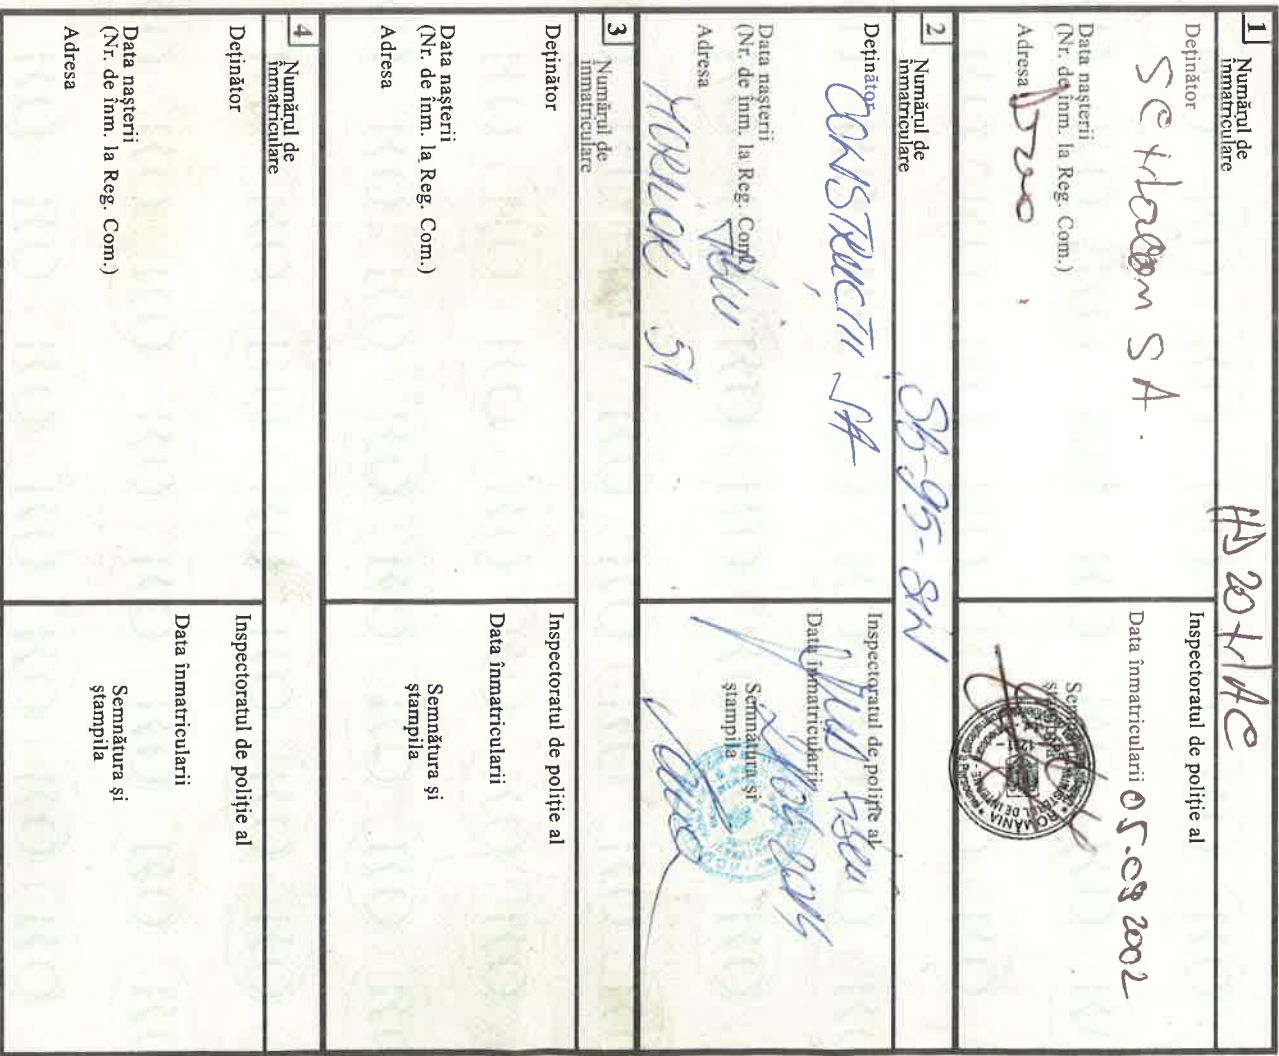 1 Numărul de
înmatriculare
HD 20 HAC
Deținător
SC Hacom SA.
Data nașterii
(Nr. de înm. la Reg. Com.)
Adresa
Inspectoratul de poliție al
Data înmatriculării 05.09 2002
ROMÂNIA
2 Numărul de
înmatriculare
SB-95-SIN
Deținător
CONSTRUCTII SA
Data nașterii
(Nr. de înm. la Reg. Com.)
Adresa
51
Inspectoratul de poliție al
Data înmatriculării
Semnătura și
ștampila
3 Numărul de
înmatriculare
Deținător
Data nașterii
(Nr. de înm. la Reg. Com.)
Adresa
Inspectoratul de poliție al
Data înmatriculării
Semnătura și
ștampila
4 Numărul de
înmatriculare
Deținător
Data nașterii
(Nr. de înm. la Reg. Com.)
Adresa
Inspectoratul de poliție al
Data înmatriculării
Semnătura și
ștampila